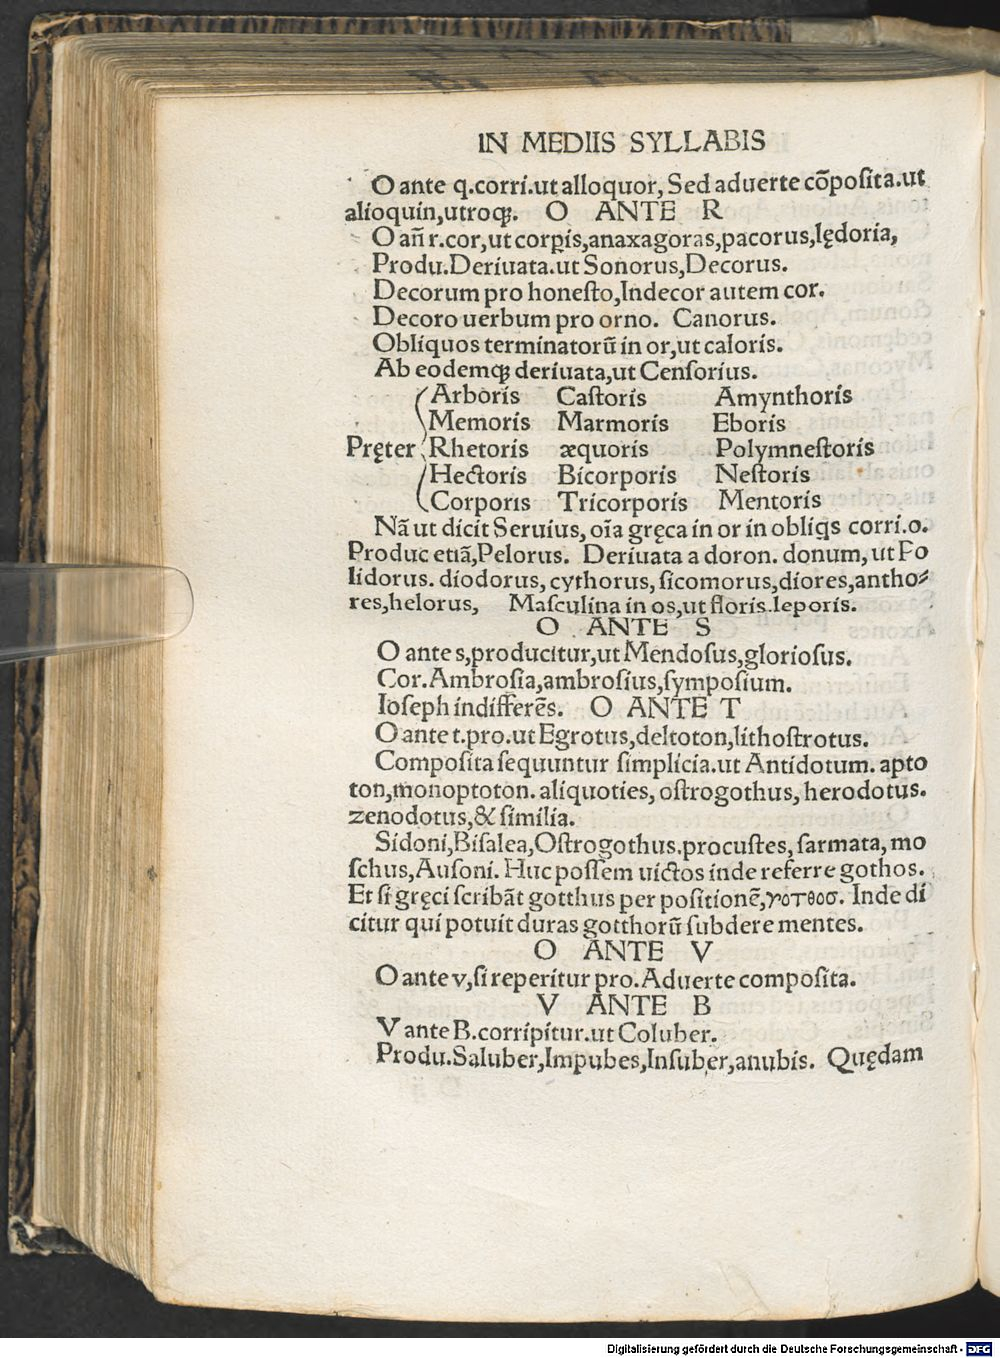 IN MEDIIS SYLLABIS
O ante q.corri.ut alloquor, Sed aduerte cõposita.ut
alioquin,utroqꝫ. O ANTE R
O añ r.cor,ut corꝑis,anaxagoras,pacorus,lędoria,
Produ.Deriuata.ut Sonorus,Decorus.
Decorum pro honesto,Indecor autem cor.
Decoro uerbum pro orno. Canorus.
Obliquos terminatorũ in or,ut caloris.
Ab eodemqꝫ deriuata,ut Censorius.
Arboris Castoris Amynthoris
Memoris Marmoris Eboris
Pręter Rhetoris æquoris Polymnestoris
Hectoris Bicorporis Nestoris
Corporis Tricorporis Mentoris
Nã ut dicit Seruius, oĩa gręca in or in obliqs corri.o.
Produc etiã,Pelorus. Deriuata a doron. donum, ut Po
lidorus. diodorus, cythorus, sicomorus,diores,antho-
res,helorus, Masculina in os,ut floris.leporis.
O ANTE S
O ante s,producitur,ut Mendosus,gloriosus.
Cor.Ambrosia,ambrosius,symposium.
Ioseph indifferẽs. O ANTE T
O ante t.pro.ut Egrotus,deltoton,lithostrotus.
Composita sequuntur simplicia.ut Antidotum. apto
ton,monoptoton. aliquoties, ostrogothus, herodotus.
zenodotus,& similia.
Sidoni,Bisalea,Ostrogothus.procustes, sarmata, mo
schus,Ausoni. Huc possem uictos inde referre gothos.
Et si gręci scribãt gotthus per positionẽ,γοτθοσ. Inde di
citur qui potuit duras gotthorũ subdere mentes.
O ANTE V
O ante v,si reperitur pro. Aduerte composita.
V ANTE B
V ante B.corripitur.ut Coluber.
Produ.Saluber,Impubes,Insuber,anubis. Quędam
Digitalisierung gefördert durch die Deutsche Forschungsgemeinschaft - DFG